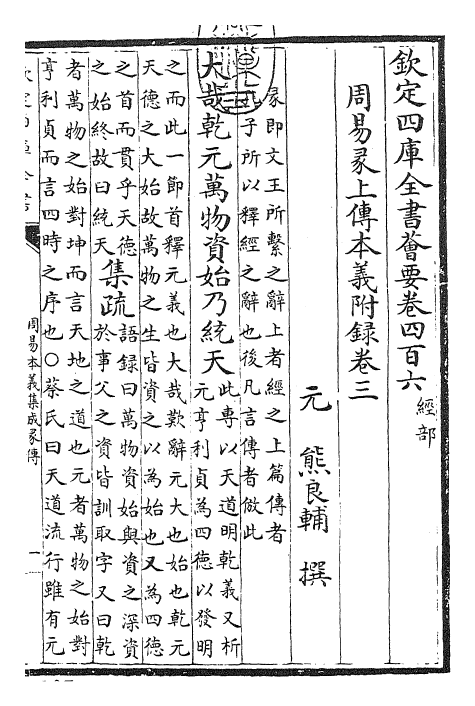 欽定四庫全書薈要卷四百六 經部
周易彖上傳本義附錄卷三
元 熊良輔 撰
彖即文王所繫之辭上者經之上篇傳者
子所以釋經之辭也後凡言傳者倣此
大哉乾元萬物資始乃統天
此専以天道明乾義又析
元亨利貞為四徳以發明
之而此一節首釋元義也大哉歎辭元大也始也乾元
天徳之大始故萬物之生皆資之以為始也又為四徳
之首而貫乎天徳
之始終故曰統天
集疏
語録曰萬物資始與資之深資
於事父之資皆訓取字又曰乾
者萬物之始對坤而言天地之道也元者萬物之始對
亨利貞而言四時之序也○蔡氏曰天道流行雖有元
周易本義集成彖傳
一